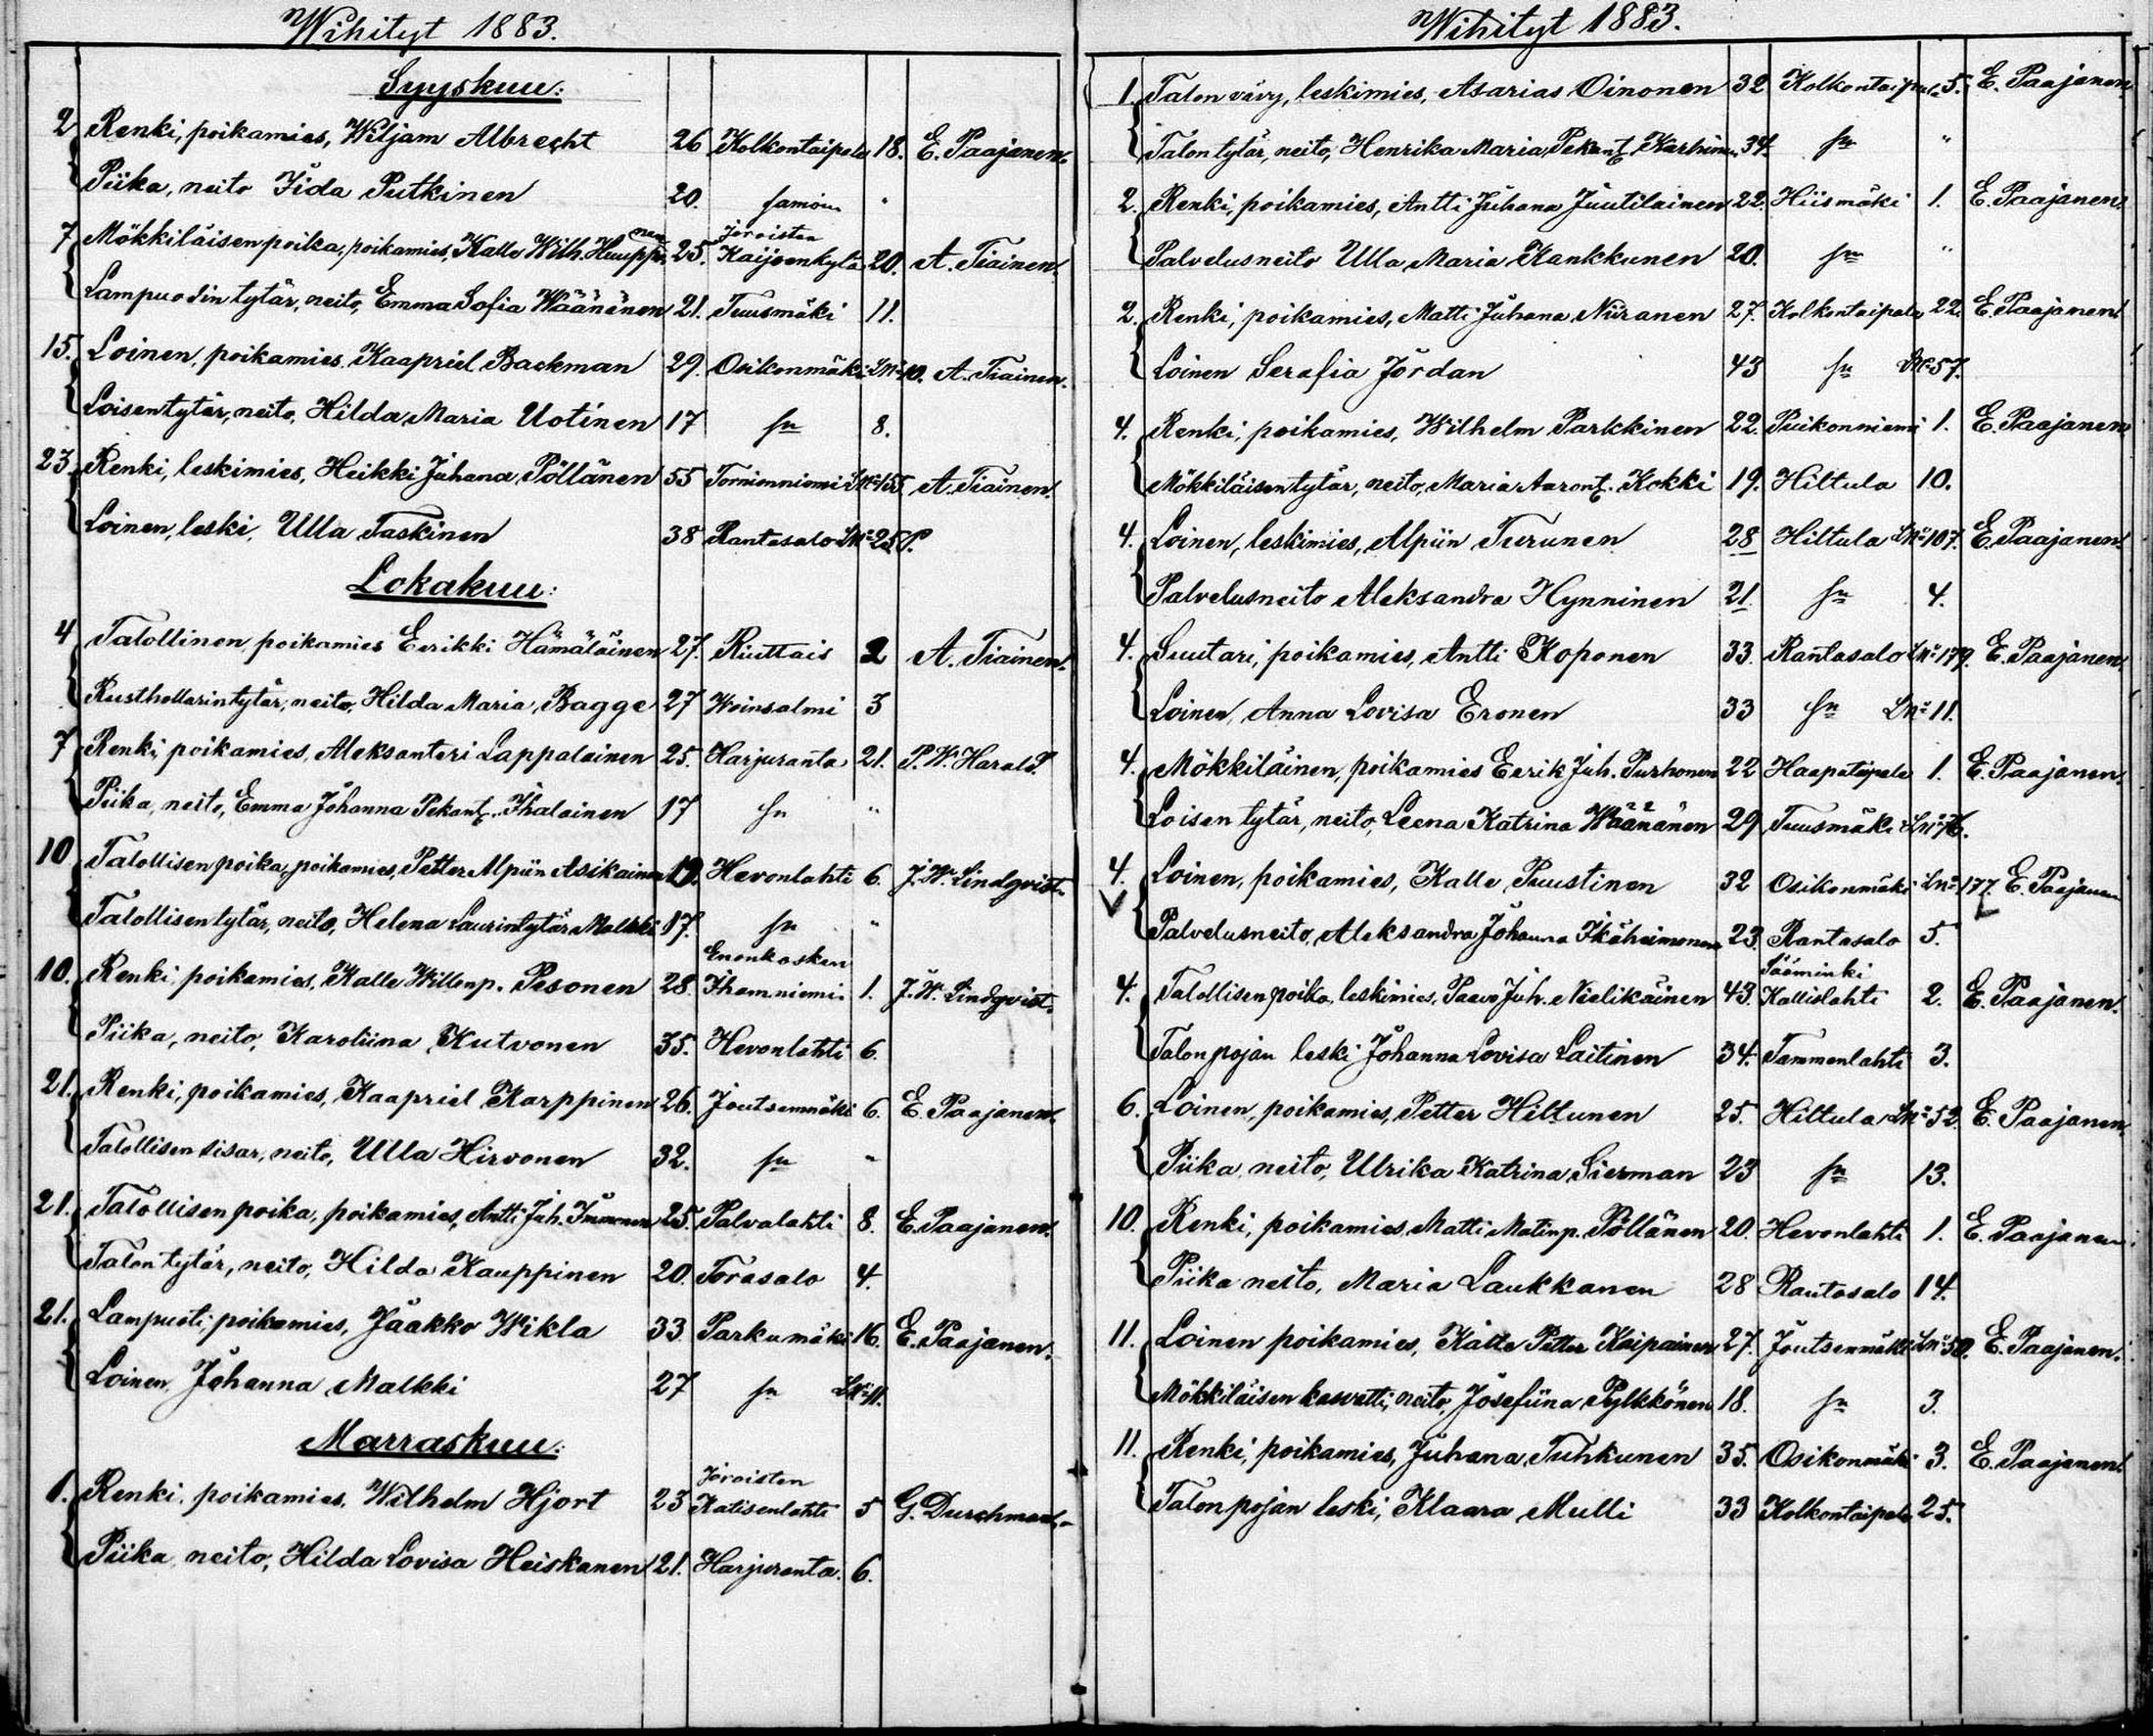 Wihityt 1883.
Syyskuu:
2 Renki, poikamies, Wiljam Albrecht 26 Kolkontaipale 18. E. Paajanen.
Piika, neito Iida Putkinen 20. samoin "
7 Mökkiläisen poika, poikamies, Kalle Wilh. Huuppinen 25. Joroisten Kaijsenkylä 20. A. Tiainen.
Lampuodin tytär, neito, Emma Sofia Wäänänen 21. Tuusmäki 11.
15. Loinen, poikamies, Kaapriel Backman 29. Osikonmäki LNo 10. A. Tiainen.
Loisen tytär, neito, Hilda Maria Uotinen 17 sn 8.
23. Renki, leskimies, Heikki Juhana Pöllänen 55 Tornionniemi LNo 155. A. Tiainen.
Loinen, leski, Ulla Taskinen 38 Rantasalo LNo 251.
Lokakuu:
4 Talollinen poikamies Eerikki Hämäläinen 27. Riuttais 2 A. Tiainen.
Rusthollarin tytär, neito, Hilda Maria Bagge 27 Woinsalmi 3
7 Renki, poikamies, Aleksanteri Lappalainen 25. Harjuranta 21. P. W. Harald.
Piika, neito, Emma Johanna Pekant. Ihalainen 17 sn "
10 Talollisen poika, poikamies, Petter Alpiin Asikainen 19. Hevonlahti 6. J. W. Lindqvist.
Talollisen tytär, neito, Helena Laurintytär Malkki 17. sn "
10. Renki, poikamies, Kalle Willenp. Pesonen 28. Enonkosken Ihamniemi 1. J. W. Lindqvist.
Piika, neito, Karoliina Kutvonen 35. Hevonlahti 6.
21. Renki, poikamies, Kaapriel Karppinen 26. Joutsenmäki 6. E. Paajanen.
Talollisen sisar, neito, Ulla Hirvonen 32. sn "
21. Talollisen poika, poikamies, Antti Juh. Immonen 25. Palvalahti 8. E. Paajanen.
Talon tytär, neito, Hilda Kauppinen 20. Torasalo 4.
21. Lampuoti, poikamies, Jaakko Wikla 33. Parkumäki 16. E. Paajanen.
Loinen, Johanna Malkki 27 sn LNo 11.
Marraskuu:
1. Renki, poikamies, Wilhelm Hjort 23 Joroisten Katisenlahti 5 G. Durchman.
Piika, neito, Hilda Lovisa Heiskanen 21. Harjuranta. 6.
Wihityt 1883.
1. Talon vävy, leskimies, Asarias Oinonen 32 Kolkontaipale 5. E. Paajanen
Talon tytär, neito, Henrika Maria Pekant. Karhinen 34. sn "
2. Renki, poikamies, Antti Juhana Juutilainen 22. Hiismäki 1. E. Paajanen.
Palvelusneito Ulla Maria Kankkunen 20. sn "
2. Renki, poikamies, Matti Juhana Niiranen 27. Kolkontaipale 22. E. Paajanen.
Loinen Serafia Jordan 43 sn LNo 57.
4. Renki, poikamies, Wilhelm Parkkinen 22. Puikonniemi 1. E. Paajanen
Mökkiläisen tytär, neito, Maria Aaront. Kokki 19. Hiltula 10.
4. Loinen, leskimies, Alpiin Turunen 28 Hiltula LNo 107. E. Paajanen.
Palvelusneito Aleksandra Hynninen 21. sn 4.
4. Suutari, poikamies, Antti Koponen 33. Rantasalo LNo 179. E. Paajanen.
Loinen, Anna Lovisa Eronen 33 sn LNo 11.
4. Mökkiläinen, poikamies Eerik Juh. Purhonen 22 Haapataipale 1. E. Paajanen.
Loisen tytär, neito, Leena Katrina Wäänänen 29 Tuusmäki LNo 76.
4. Loinen, poikamies, Kalle Puustinen 32 Osikonmäki LNo 177. E. Paajanen
Palvelusneito, Aleksandra Johanna Ikäheimonen 23. Rantasalo 5.
4. Talollisen poika, leskimies, Paavo Juh. Nielikäinen 43. Sääminki Kallislahti 2. E. Paajanen.
Talonpojan leski Johanna Lovisa Laitinen 34. Tammenlahti 3.
6. Loinen, poikamies, Petter Hiltunen 25. Hiltula LNo 52. E. Paajanen.
Piika, neito, Ulrika Katrina Sierman 23 sn 13.
10. Renki, poikamies Matti Matinp. Pöllänen 20. Hevonlahti 1. E. Paajanen.
Piika neito, Maria Laukkanen 28 Rantasalo 14.
11. Loinen poikamies, Kalle Petter Kaipainen 27. Joutsenmäki LNo 50. E. Paajanen.
Mökkiläisen kasvatti, neito, Josefiina Pylkkönen 18. sn 3.
11. Renki, poikamies, Juhana Tuhkunen 35. Osikonmäki 3. E. Paajanen.
Talonpojan leski, Klaara Mulli 33 Kolkontaipale 25.